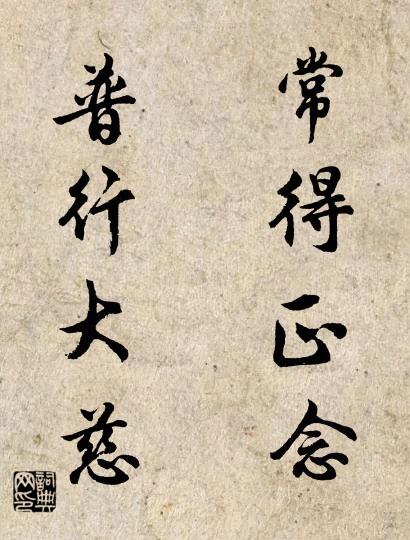 常得正念
普行大慈
詞典网印